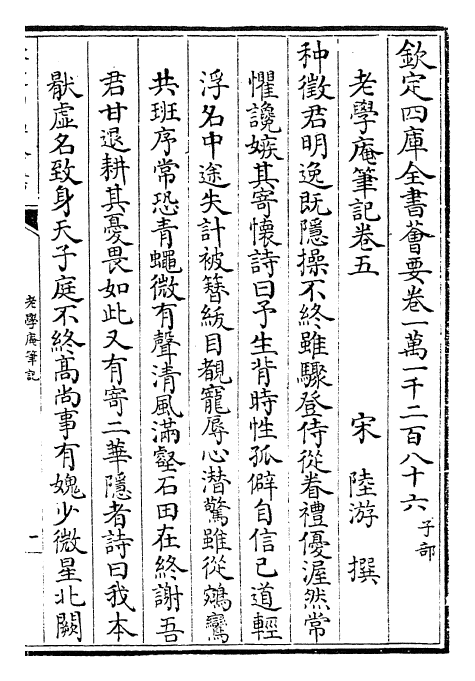 欽定四庫全書薈要卷一萬一千二百八十六子部
老學庵筆記卷五
宋 陸游 撰
种徵君明逸既隱操不終雖驟登侍從眷禮優渥然常
懼讒嫉其寄懷詩曰予生背時性孤僻自信已道輕
浮名中途失計被簪紱目覩寵辱心潜驚雖從鵷鸞
共班序常恐青蠅微有聲清風滿壑石田在終謝吾
君甘退耕其憂畏如此又有寄二華隱者詩曰我本
厭虛名致身天子庭不終高尚事有媿少微星北闕
老學庵筆記
一